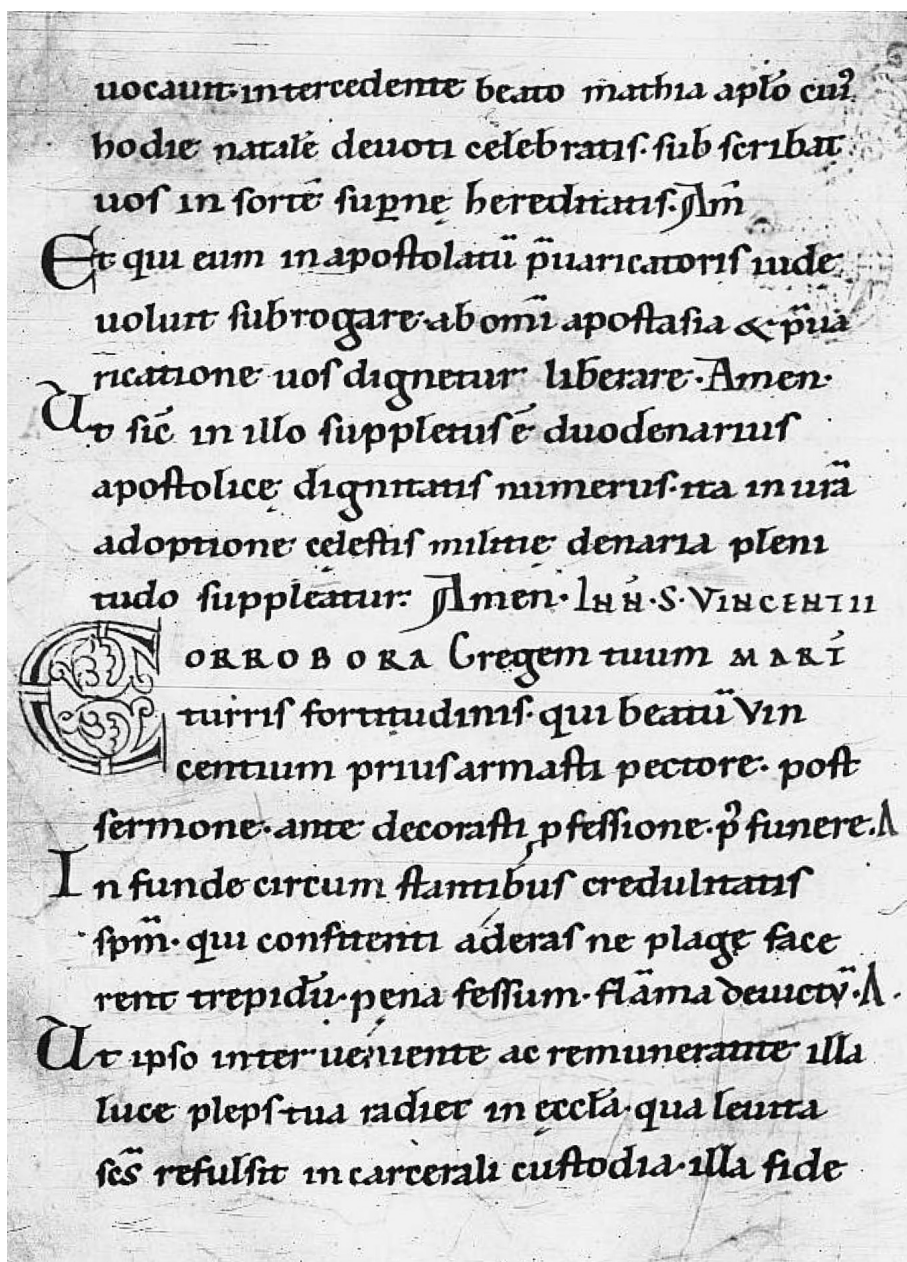 uocauit· intercedente beato mathia aplō cui᾽
hodie natalē deuoti celebratis· sub scribat
uos in sortē suꝑnę hereditatis. Am̄
Et qui eum in apostolatū p̄uaricatoris iudę
uoluit subrogare· ab om̄i apostasia & p̄ua
ricatione uos dignetur liberare· Amen·
Ut sic̄ in illo suppletus ē duodenarius
apostolicę dignitatis numerus· ita in ur̄a
adoptione cęlestis militię denaria pleni
tudo suppleatur. Amen· IN N̄· S· VINCENTII
CORROBORA Gregem tuum MARĪ
turris fortitudinis· qui beatū Vin
centium prius armasti pectore· post
sermone· ante decorasti ꝓfessione· p᾽ funere. A
In funde circum stantibus credulitatis
sp̄m· qui confitenti aderas ne plagę face
rent trepidū· pena fessum· flāma deuictū· A·
Ut ipso inter ueniente ac remunerante illa
luce pleps tua radiet in ęccl̄a· qua leuita
sc̄s refulsit in carcerali custodia· illa fide